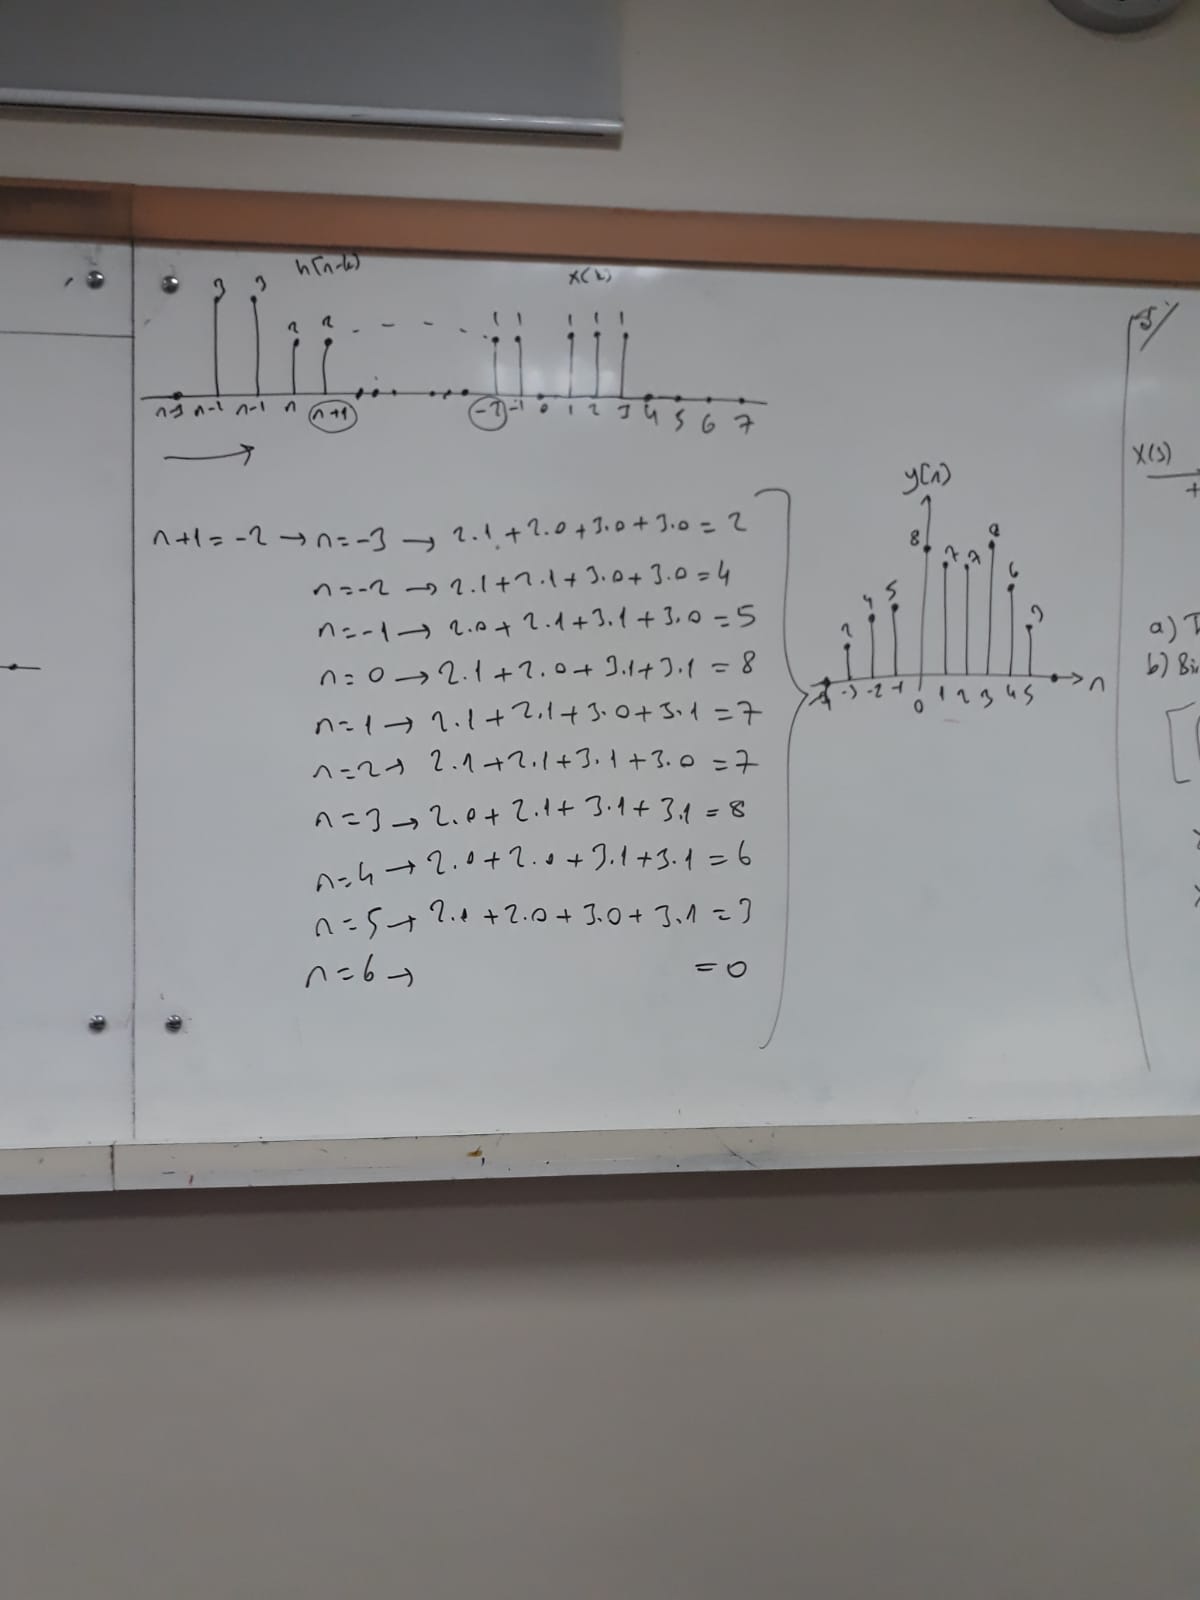 h[n-k]
x(k)
3 3 2 2 - - - 1 1 1 1 1
n-3 n-2 n-1 n n+1 -2 -1 0 1 2 3 4 5 6 7
n+1=-2 → n=-3 → 2.1+2.0+3.0+3.0=2
n=-2 → 2.1+2.1+3.0+3.0=4
n=-1 → 2.0+2.1+3.1+3.0=5
n=0 → 2.1+2.0+3.1+3.1=8
n=1 → 2.1+2.1+3.0+3.1=7
n=2 → 2.1+2.1+3.1+3.0=7
n=3 → 2.0+2.1+3.1+3.1=8
n=4 → 2.0+2.0+3.1+3.1=6
n=5 → 2.0+2.0+3.0+3.1=3
n=6 → =0
y[n]
2 4 5 8 7 7 8 6 3
-4 -3 -2 -1 0 1 2 3 4 5 n
5/
X(s)
+
a)
b) Bi